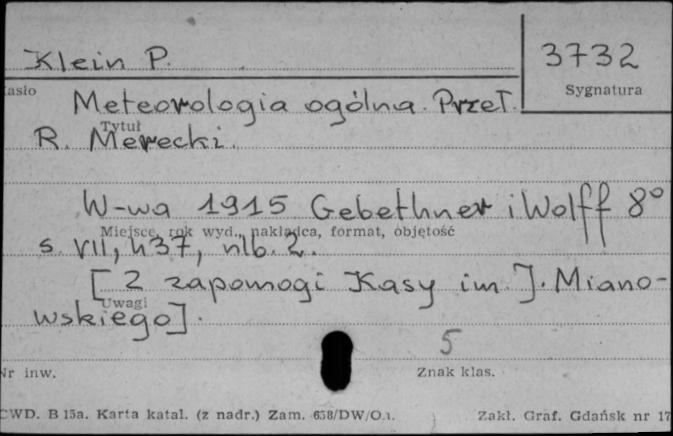 Klein P.
3732
Sygnatura
asło
Meteorologia ogólna. Przeł.
Tytuł
R. Merecki.
W-wa 1915 Gebethner i Wolff 8°
Miejsce, rok wyd., nakładca, format, objętość
s. VII, 437, nlb. 2.
[Z zapomogi Kasy im. J. Miano-
Uwagi
wskiego].
5
Nr inw.
Znak klas.
CWD. B 15a. Karta katal. (z nadr.) Zam. 658/DW/O.1.
Zakł. Graf. Gdańsk nr 17